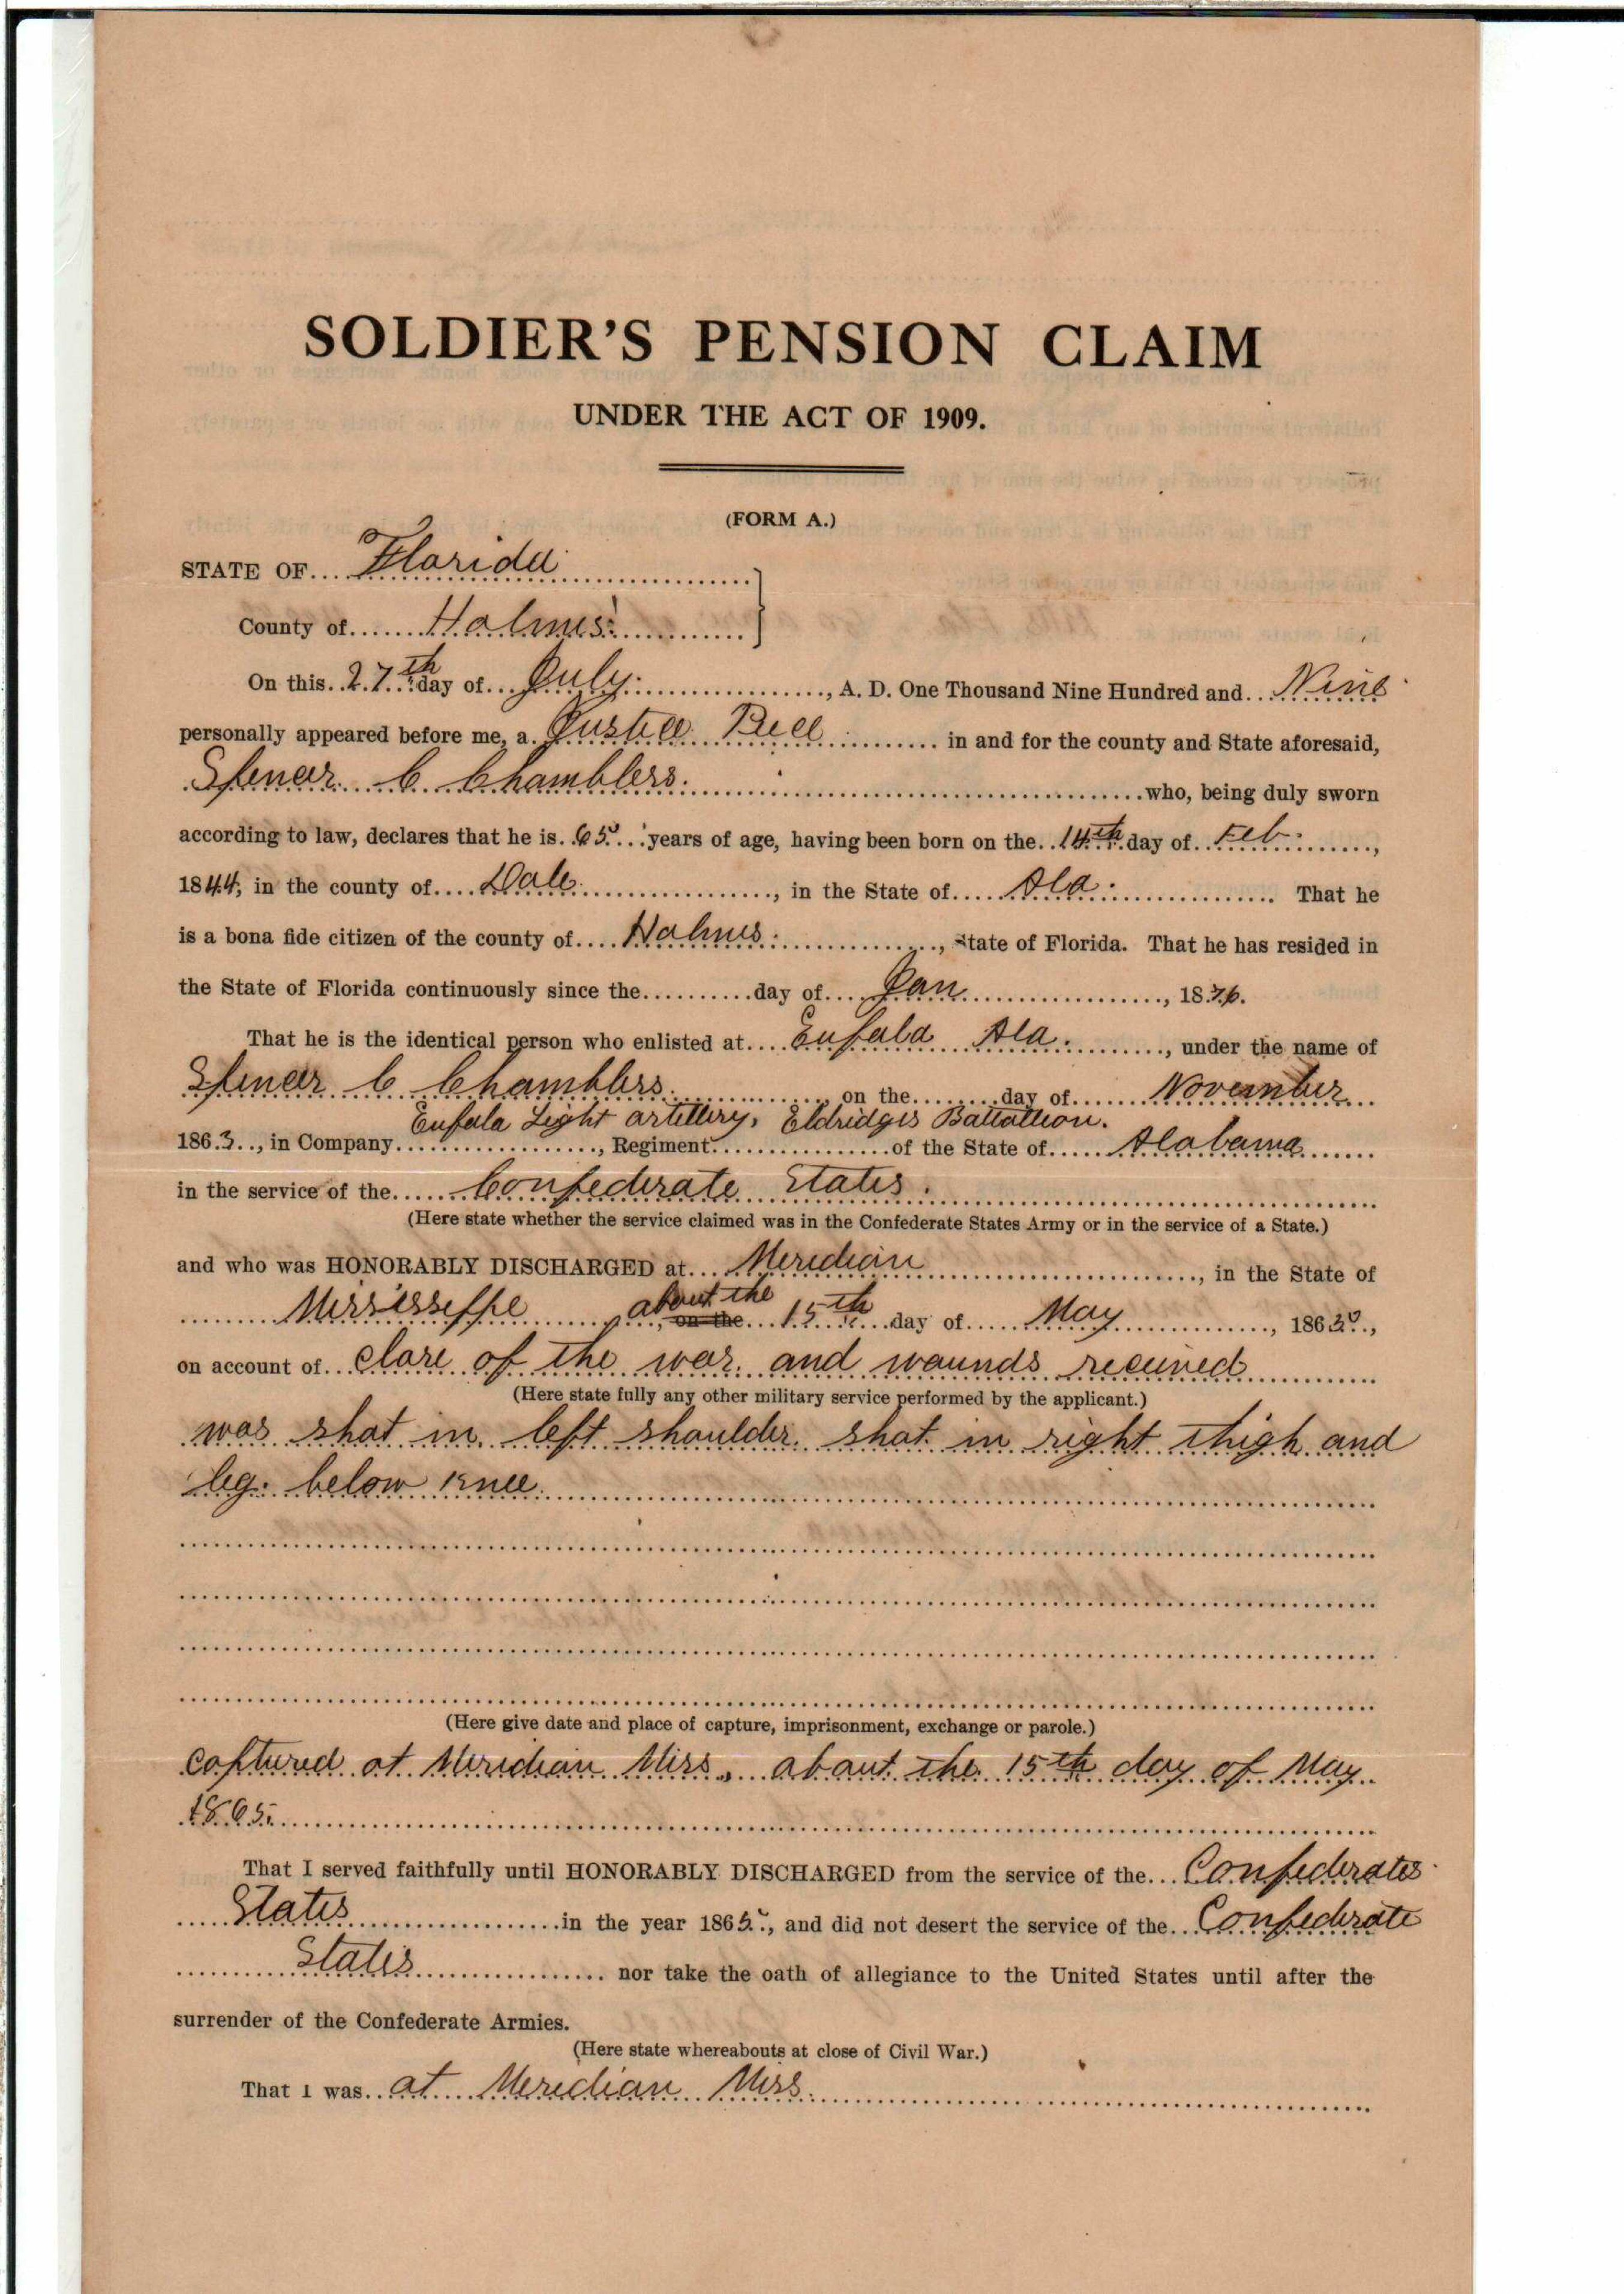 SOLDIER'S PENSION CLAIM
UNDER THE ACT OF 1909.
(FORM A.)
STATE OF.... Florida
County of....... Holmes
On this 27th day of July, A. D. One Thousand Nine Hundred and Nine
personally appeared before me, a in and for the county and State aforesaid,
Spencer C Chamblers who, being duly sworn
according to law, declares that he is 65 years of age, having been born on the 14th day of Feb.,
1844, in the county of Dale, in the State of Ala. That he
is a bona fide citizen of the county of Holmes, State of Florida. That he has resided in
the State of Florida continuously since the..........day of Jan, 1876.
That he is the identical person who enlisted at Eufala Ala., under the name of
Spencer C Chamblers on the........day of November
Eufala Light artillery, Eldridges Battallion.
1863, in Company.................., Regiment................of the State of Alabama
in the service of the Confederate States.
(Here state whether the service claimed was in the Confederate States Army or in the service of a State.)
and who was HONORABLY DISCHARGED at Meridian, in the State of
Mississippe about the on the 15th day of May, 1865,
on account of close of the war. and wounds received
(Here state fully any other military service performed by the applicant.)
was shot in left shoulder. shot in right thigh and
leg. below knee.
(Here give date and place of capture, imprisonment, exchange or parole.)
captured at Meridian Miss, about the 15th day of May
1865.
That I served faithfully until HONORABLY DISCHARGED from the service of the Confederates
States in the year 1865, and did not desert the service of the Confederate
States nor take the oath of allegiance to the United States until after the
surrender of the Confederate Armies.
(Here state whereabouts at close of Civil War.)
That I was at Meridian Miss.